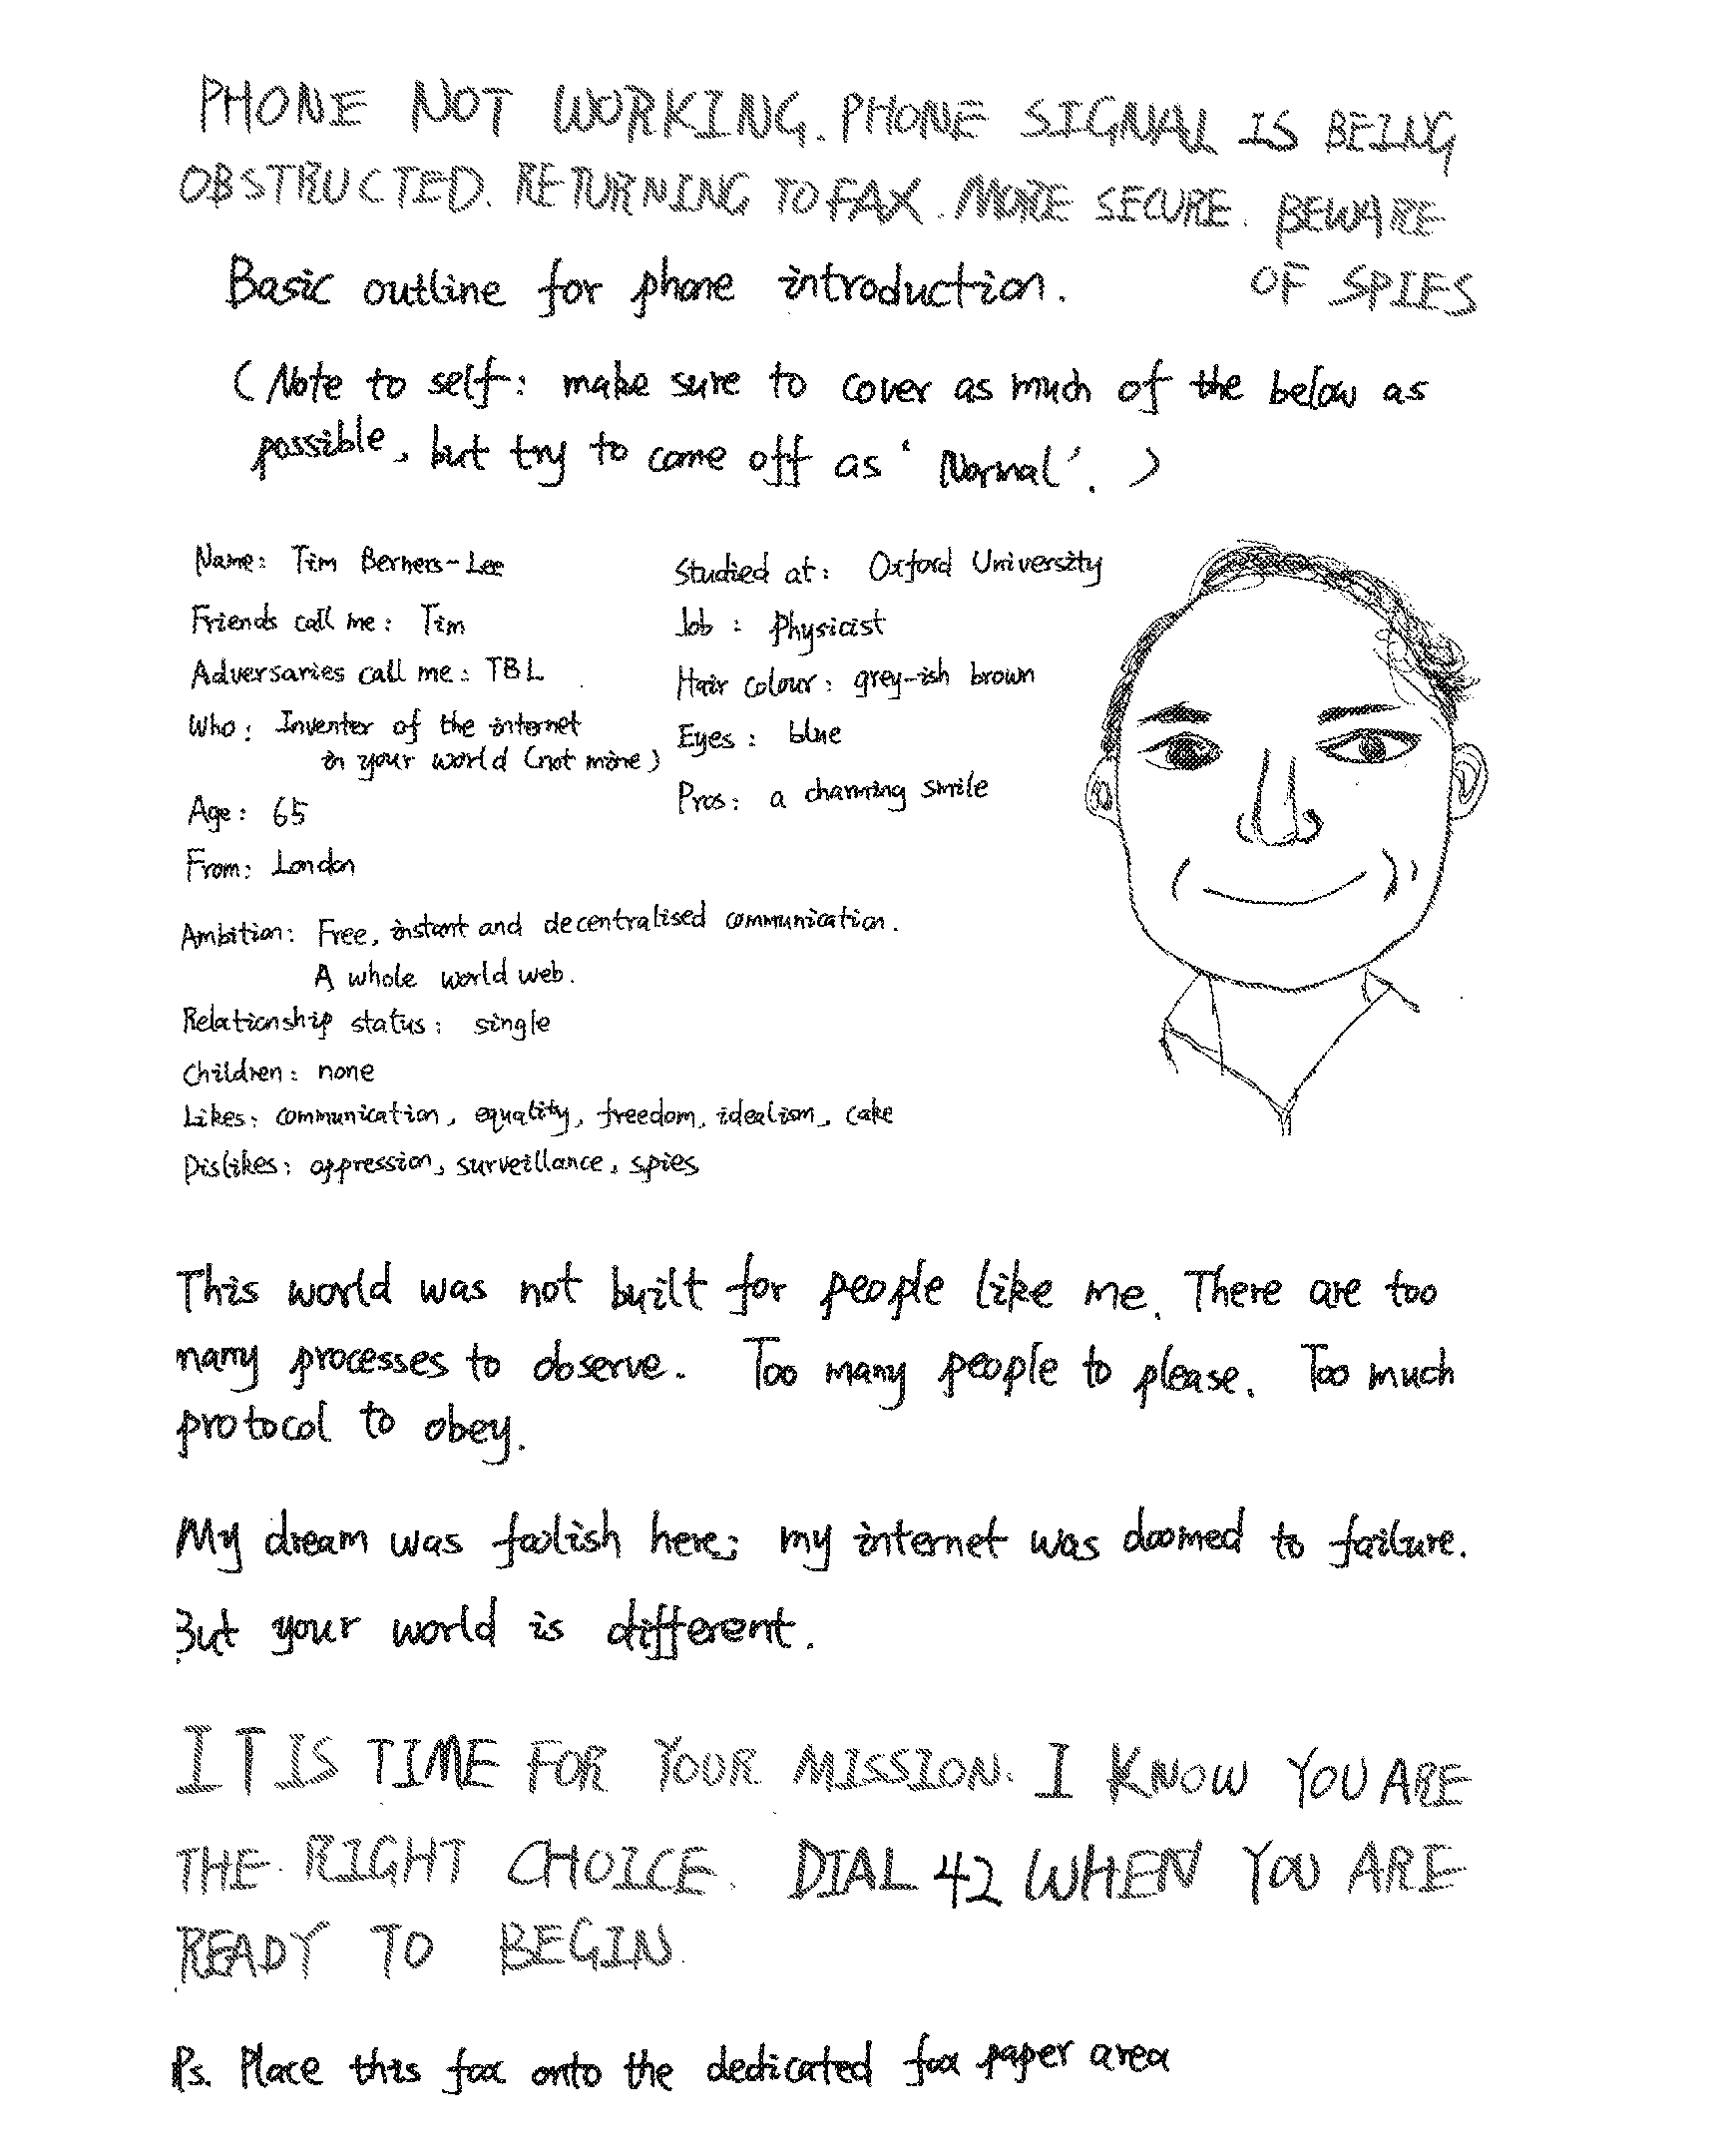 PHONE NOT WORKING. PHONE SIGNAL IS BEING
OBSTRUCTED. RETURNING TO FAX. MORE SECURE. BEWARE
OF SPIES
Basic outline for phone introduction.
(Note to self: make sure to cover as much of the below as
possible, but try to come off as 'Normal'.)
Name: Tim Berners-Lee
Friends call me: Tim
Adversaries call me: TBL
Who: Inventer of the internet
in your world (not mine)
Age: 65
From: London
Studied at: Oxford University
Job: Physicist
Hair colour: grey-ish brown
Eyes: blue
Pros: a charming smile
Ambition: Free, instant and decentralised communication.
A whole world web.
Relationship status: single
Children: none
Likes: communication, equality, freedom, idealism, cake
Dislikes: oppression, surveillance, spies
This world was not built for people like me. There are too
many processes to observe. Too many people to please. Too much
protocol to obey.
My dream was foolish here; my internet was doomed to failure.
But your world is different.
IT IS TIME FOR YOUR MISSION. I KNOW YOU ARE
THE RIGHT CHOICE. DIAL 42 WHEN YOU ARE
READY TO BEGIN.
Ps. Place this fax onto the dedicated fax paper area